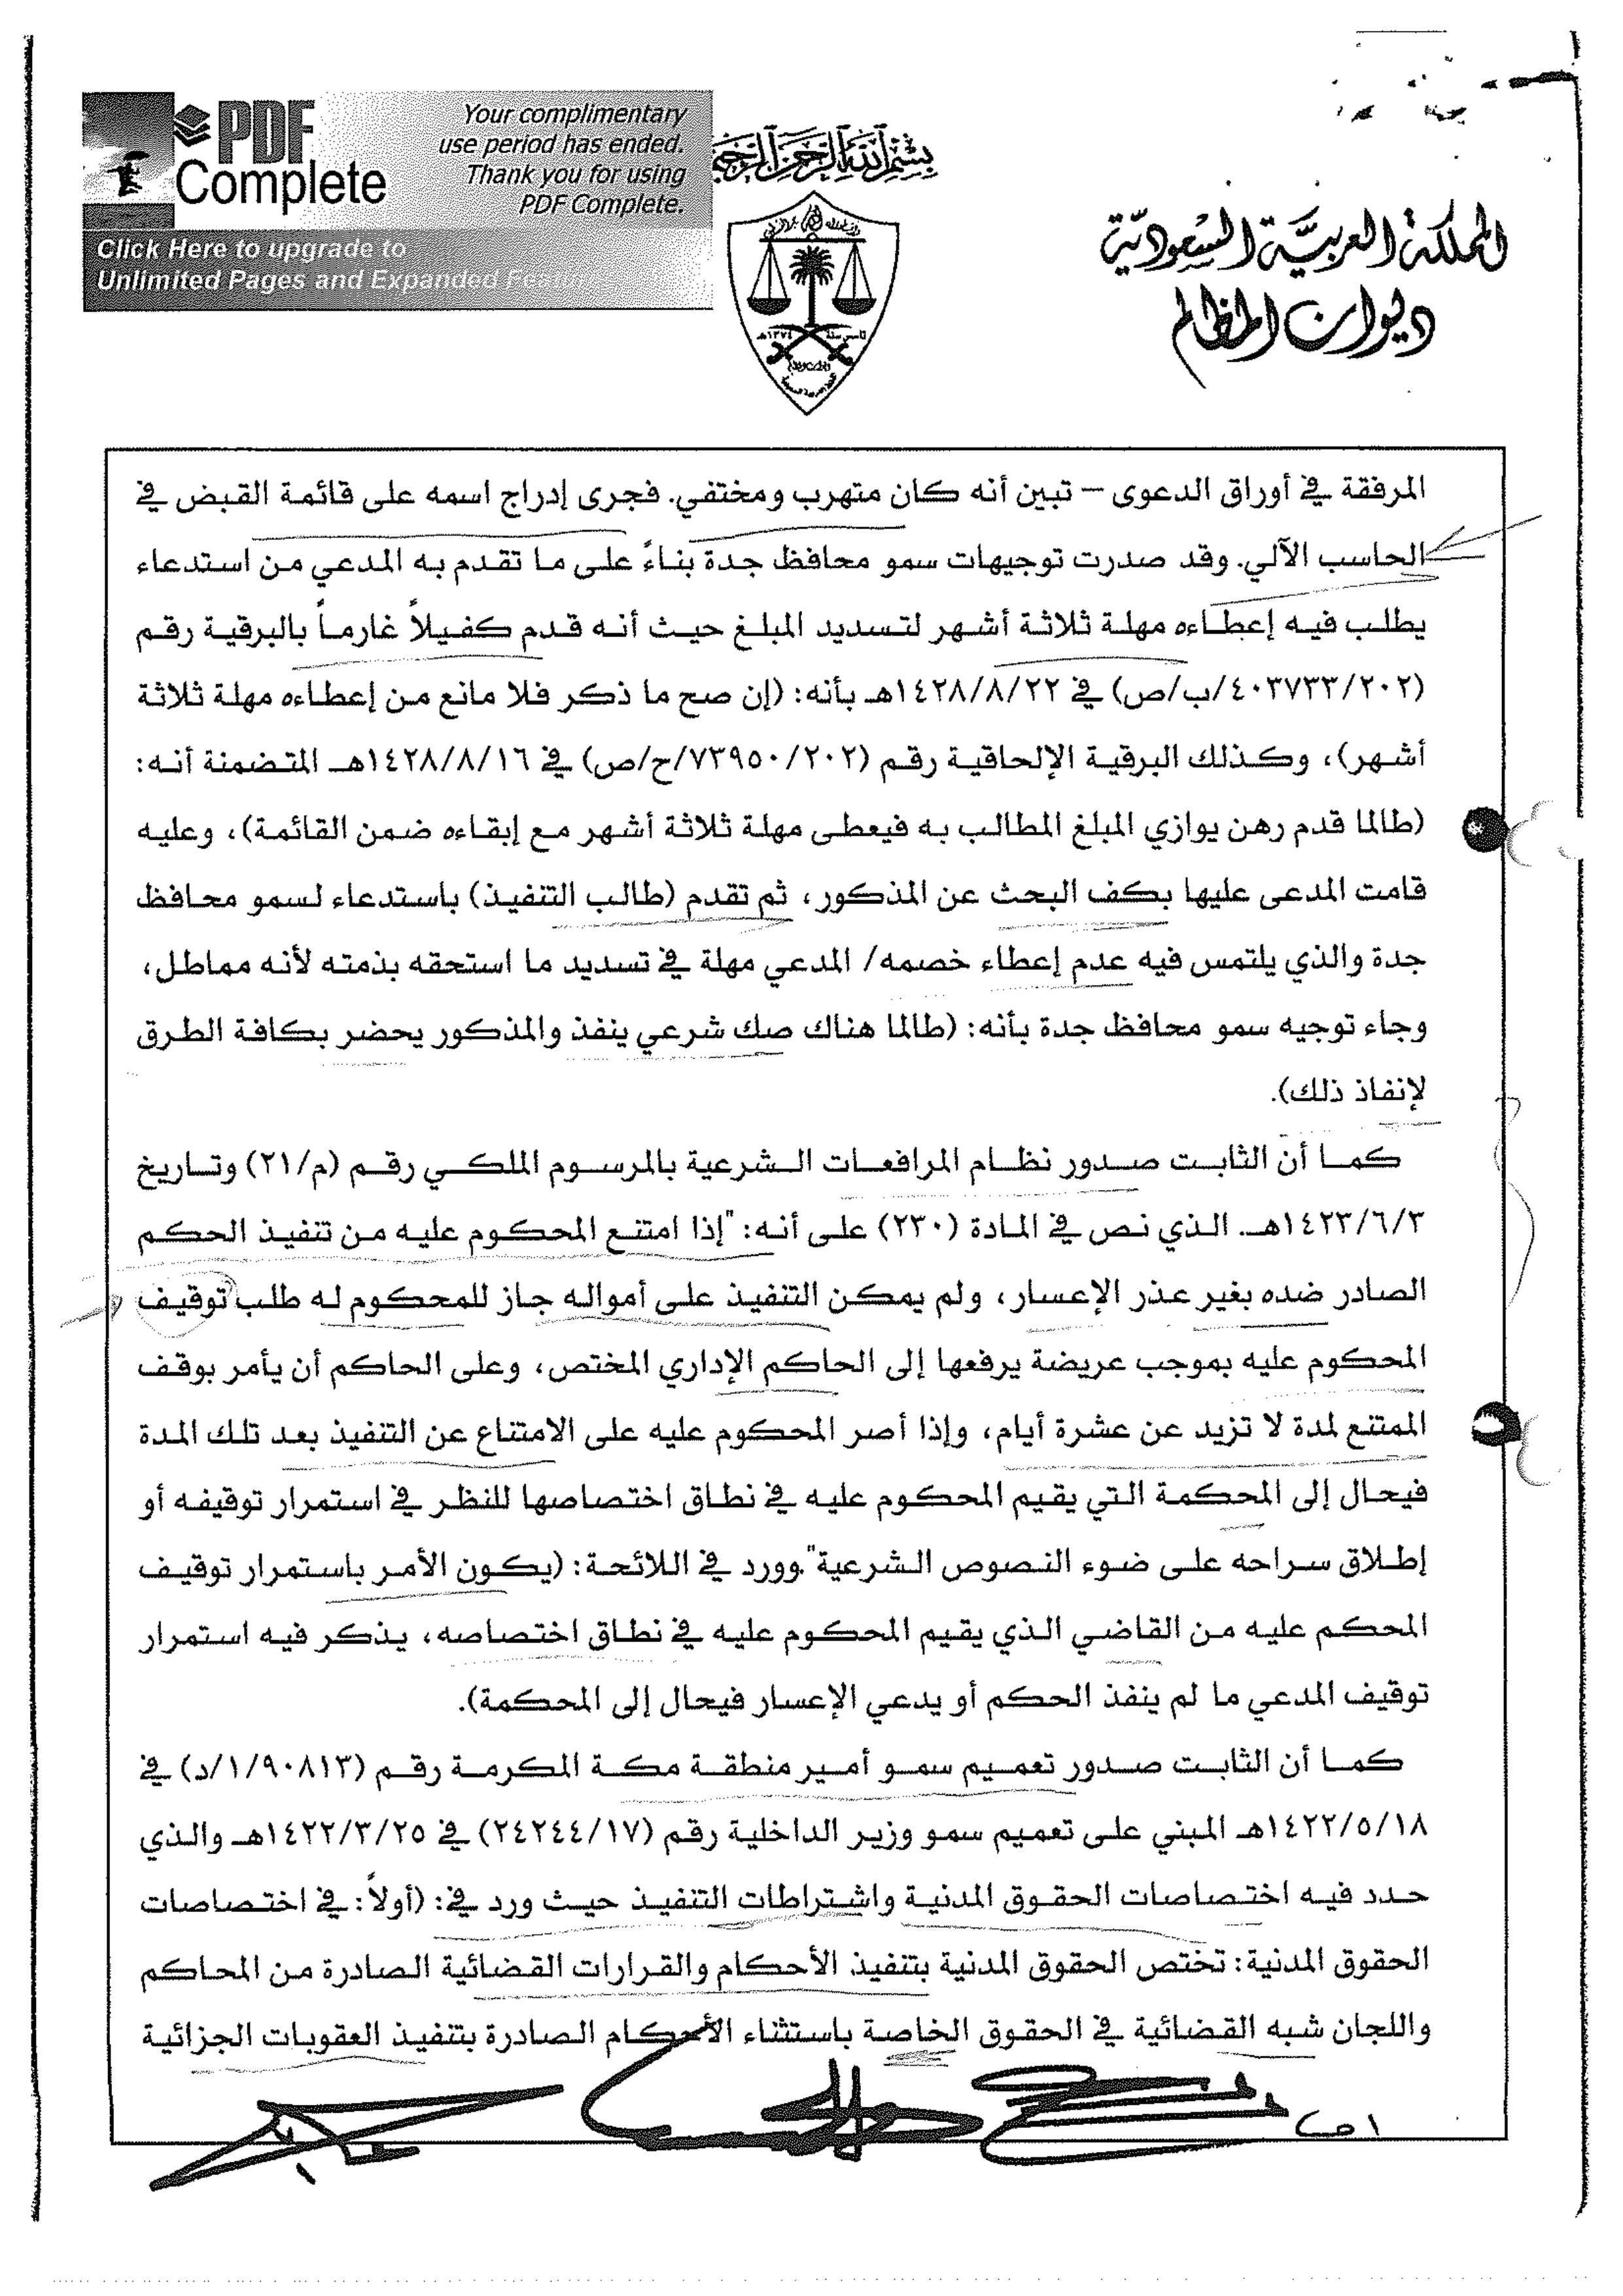 Your complimentary
use period has ended.
Thank you for using
PDF Complete.
PDF
Complete
Click Here to upgrade to
Unlimited Pages and Expanded Features
بسم الله الرحمن الرحيم
المملكة العربية السعودية
ديوان المظالم
المرفقة في أوراق الدعوى – تبين أنه كان متهرب ومختفي. فجرى إدراج اسمه على قائمة القبض في
الحاسب الآلي. وقد صدرت توجيهات سمو محافظ جدة بناءً على ما تقدم به المدعي من استدعاء
يطلب فيه إعطاءه مهلة ثلاثة أشهر لتسديد المبلغ حيث أنه قدم كفيلاً غارماً بالبرقية رقم
(٤٠٣٧٣٣/٢٠٢/ب/ص) في ١٤٢٨/٨/٢٢هـ بأنه: (إن صح ما ذكر فلا مانع من إعطاءه مهلة ثلاثة
أشهر)، وكذلك البرقية الإلحاقية رقم (٧٣٩٥٠/٢٠٢/ح/ص) في ١٤٢٨/٨/١٦هـ المتضمنة أنه:
(طالما قدم رهن يوازي المبلغ المطالب به فيعطى مهلة ثلاثة أشهر مع إبقاءه ضمن القائمة)، وعليه
قامت المدعى عليها بكف البحث عن المذكور، ثم تقدم (طالب التنفيذ) باستدعاء لسمو محافظ
جدة والذي يلتمس فيه عدم إعطاء خصمه/ المدعي مهلة في تسديد ما استحقه بذمته لأنه مماطل،
وجاء توجيه سمو محافظ جدة بأنه: (طالما هناك صك شرعي ينفذ والمذكور يحضر بكافة الطرق
لإنفاذ ذلك).
كما أن الثابت صدور نظام المرافعات الشرعية بالمرسوم الملكي رقم (م/٢١) وتاريخ
١٤٢٣/٦/٣هـ. الذي نص في المادة (٢٣٠) على أنه: "إذا امتنع المحكوم عليه من تنفيذ الحكم
الصادر ضده بغير عذر الإعسار، ولم يمكن التنفيذ على أمواله جاز للمحكوم له طلب توقيف
المحكوم عليه بموجب عريضة يرفعها إلى الحاكم الإداري المختص، وعلى الحاكم أن يأمر بوقف
الممتنع لمدة لا تزيد عن عشرة أيام، وإذا أصر المحكوم عليه على الامتناع عن التنفيذ بعد تلك المدة
فيحال إلى المحكمة التي يقيم المحكوم عليه في نطاق اختصاصها للنظر في استمرار توقيفه أو
إطلاق سراحه على ضوء النصوص الشرعية". وورد في اللائحة: (يكون الأمر باستمرار توقيف
المحكم عليه من القاضي الذي يقيم المحكوم عليه في نطاق اختصاصه، يذكر فيه استمرار
توقيف المدعي ما لم ينفذ الحكم أو يدعي الإعسار فيحال إلى المحكمة).
كما أن الثابت صدور تعميم سمو أمير منطقة مكة المكرمة رقم (١/٩٠٨١٣/د) في
١٤٢٢/٥/١٨هـ المبني على تعميم سمو وزير الداخلية رقم (٢٤٢٤٤/١٧) في ١٤٢٢/٣/٢٥هـ والذي
حدد فيه اختصاصات الحقوق المدنية واشتراطات التنفيذ حيث ورد في: (أولاً: في اختصاصات
الحقوق المدنية: تختص الحقوق المدنية بتنفيذ الأحكام والقرارات القضائية الصادرة من المحاكم
واللجان شبه القضائية في الحقوق الخاصة باستثناء الأحكام الصادرة بتنفيذ العقوبات الجزائية